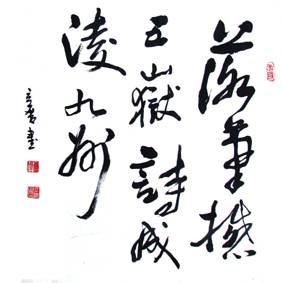 落筆撼
五嶽詩成
凌九州